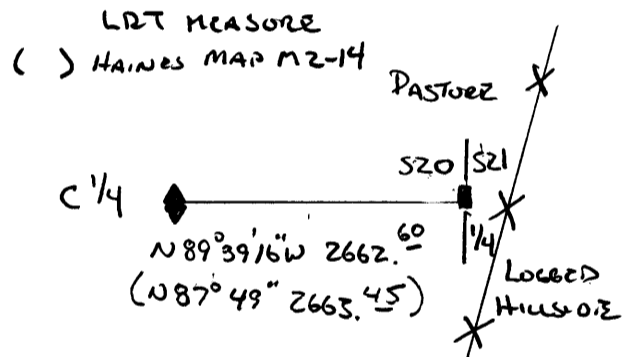 LDT MEASURE
( ) HAINES MAP M2-14
PASTURE
S20 | S21
C 1/4
1/4
N 89°39'16"W 2662.60
(N87°49" 2663.45)
LOGGED
HILLSIDE